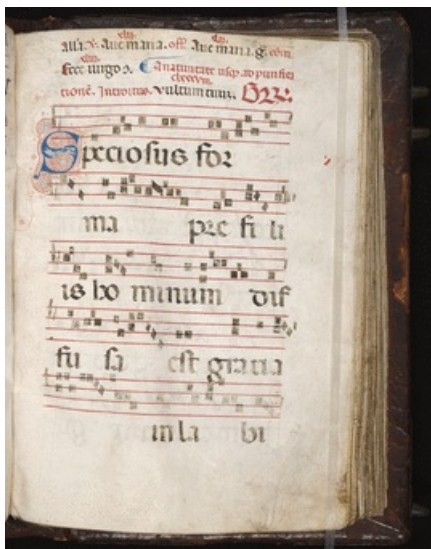 all'a. V. Aue maria. off. Aue maria. g. com
Ecce uirgo. A natiuitate usq ad purifica
tionē. Introitus. Vultum tuum.
Speciosus for
ma pre fi li
is ho minum dif
fu sa est gratia
in la bi